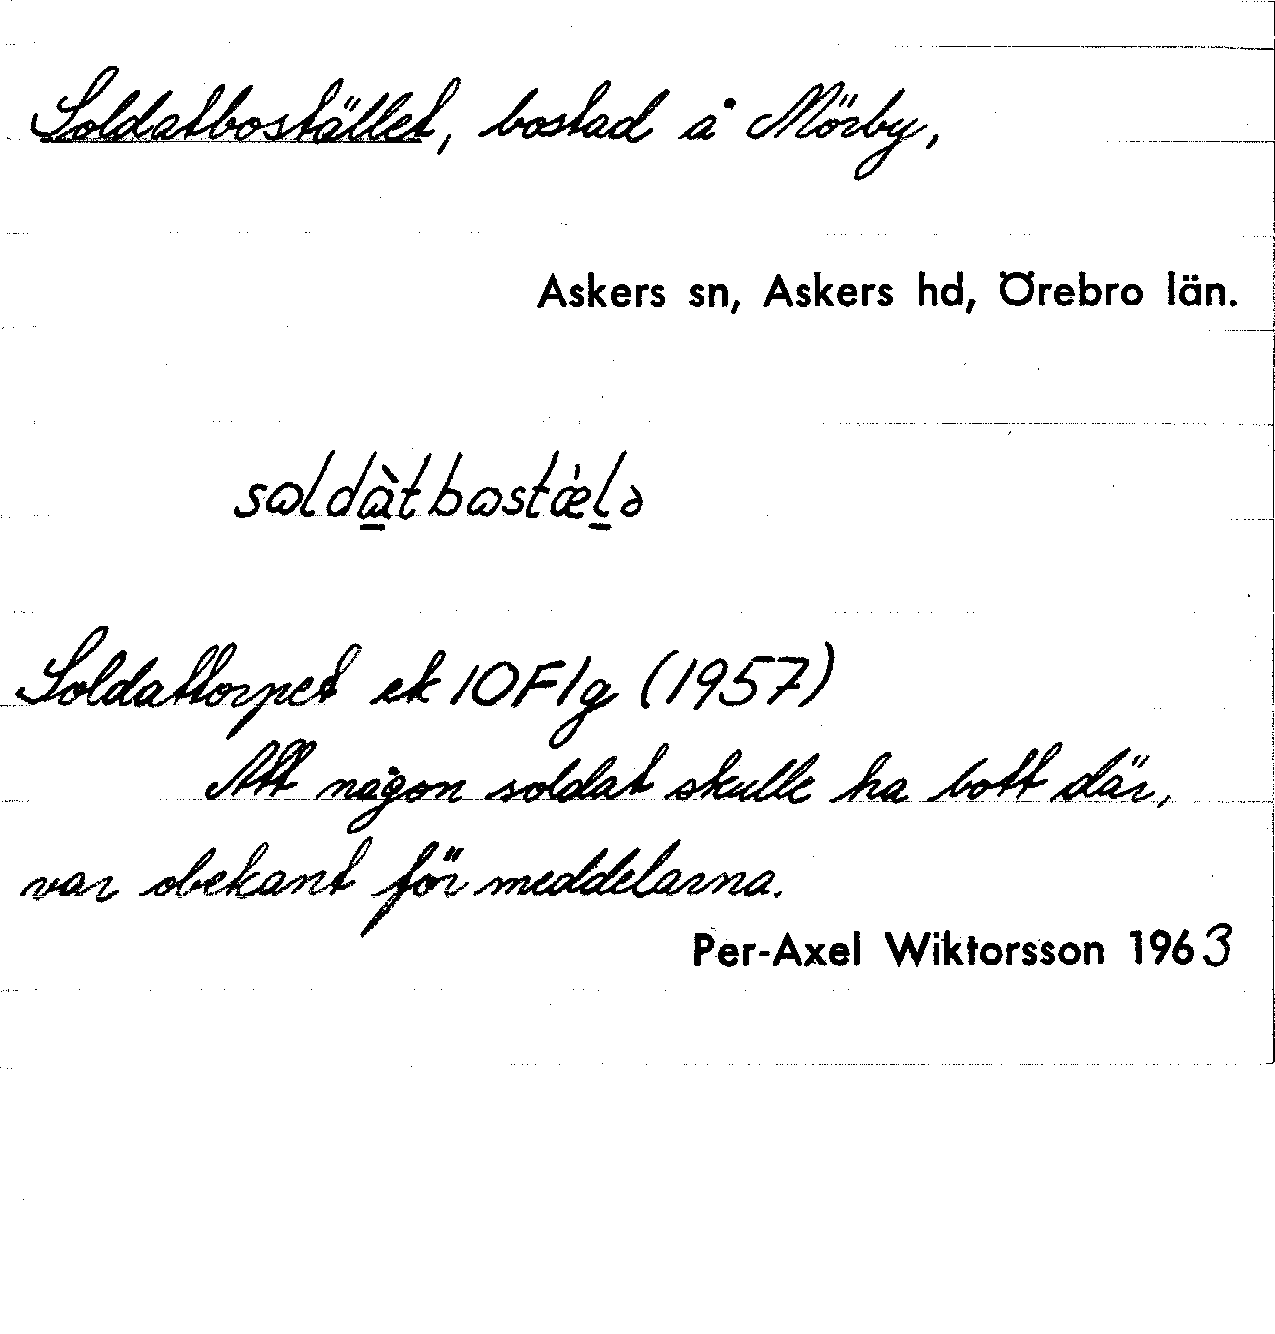 Soldatbostället, bostad å Mörby,
Askers sn, Askers hd, Örebro län.
sɷldɑ̀tbɷstǽlə
Soldattorpet ek 10F1g (1957)
Att någon soldat skulle ha bott där,
var obekant för meddelarna.
Per-Axel Wiktorsson 1963